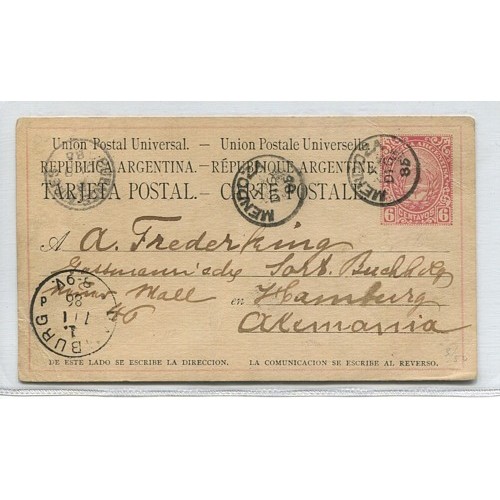 Union Postal Universal. — Union Postale Universelle
REPUBLICA ARGENTINA. — RÉPUBLIQUE ARGENTINE
TARJETA POSTAL. — CARTE POSTALE
MENDOZA
MENDOZA
DIC
85
6 CENTAVOS 6
A A. Frederking
Sort. Buchhdg
Mall en Hamburg
Alemania
BURG
DE ESTE LADO SE ESCRIBE LA DIRECCION. LA COMUNICACION SE ESCRIBE AL REVERSO.